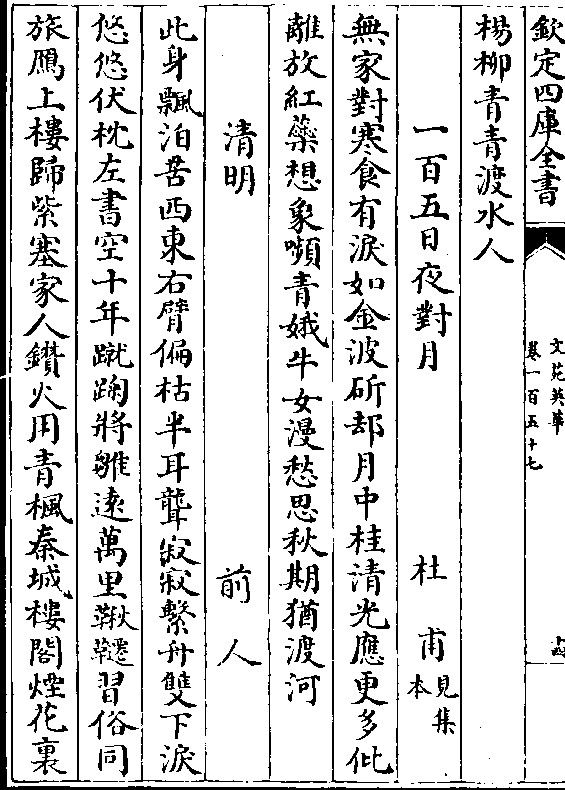 欽定四庫全書
文苑英華
卷一百五十七
十四
楊柳青青渡水人
一百五日夜對月　杜甫見集本
無家對寒食有淚如金波斫却月中桂清光應更多仳
離放紅蘂想象嚬青娥牛女漫愁思秋期猶渡河
清明　前人
此身飄泊苦西東右臂偏枯半耳聾寂寂繫舟雙下淚
悠悠伏枕左書空十年蹴踘將雛遠萬里鞦韆習俗同
旅鴈上樓歸紫塞家人鑽火用青楓秦城樓閣煙花裏